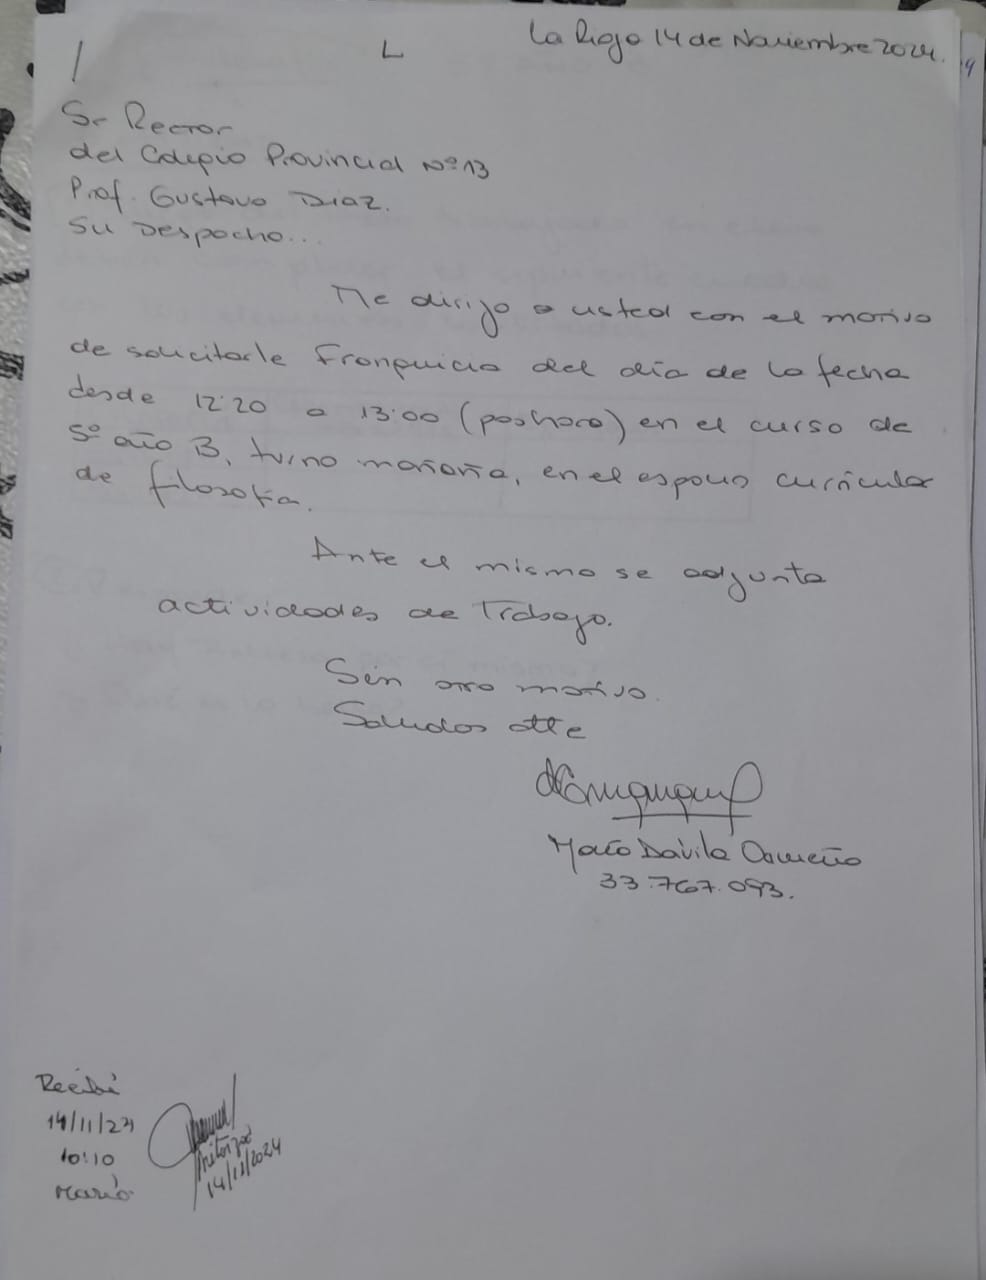 La Rioja 14 de Noviembre 2024.
Sr Rector
del Colegio Provincial Nº 13
Prof. Gustavo Diaz.
Su Despacho...
Me dirijo a usted con el motivo
de solicitarle Franquicia del día de la fecha
desde 12:20 a 13:00 (poshora) en el curso de
5º año B, turno mañana, en el espacio curricular
de filosofia.
Ante el mismo se adjunta
actividades de Trabajo.
Sin otro motivo.
Saludos atte
Dávila
33.767.093.
Recibí
14/11/24
10:10
Mario
14/11/2024